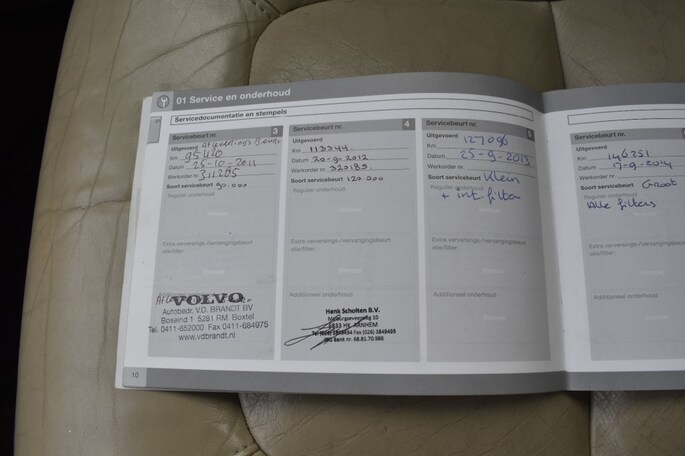 01 Service en onderhoud
Servicedocumentatie en stempels
Servicebeurt nr. 3
Uitgevoerd
Km 95410
Datum 25-10-2011
Werkorder nr. 311205
Soort servicebeurt 90.000
Regulier onderhoud
Extra verversings-/vervangingsbeurt
olie/filter:
Additioneel onderhoud
VOLVO
Autobedr. V.D. BRANDT BV
Boseind 1 5281 RM Boxtel
Tel. 0411-652000 Fax 0411-684975
www.vdbrandt.nl
10
Servicebeurt nr. 4
Uitgevoerd
Km 113344
Datum 20-9-2012
Werkorder nr. 320185
Soort servicebeurt 120 000
Regulier onderhoud
Extra verversings-/vervangingsbeurt
olie/filter:
Additioneel onderhoud
Henk Scholten B.V.
Servicebeurt nr. 5
Uitgevoerd
Km 127096
Datum 25-9-2013
Werkorder nr.
Soort servicebeurt Klein
Regulier onderhoud
+ int filter
Extra verversings-/vervangingsbeurt
olie/filter:
Additioneel onderhoud
Servicebeurt nr.
Uitgevoerd
Km 146251
Datum 17-9-2014
Werkorder nr.
Soort servicebeurt Groot
Regulier onderhoud
Alle filters
Extra verversings-/vervangingsbeurt
olie/filter:
Additioneel onderhoud